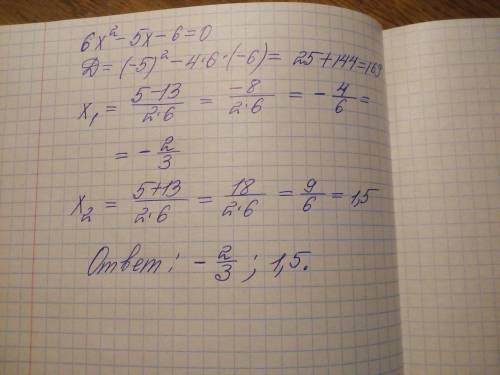 6x² - 5x - 6 = 0
Д = (-5)² - 4·6·(-6) = 25 + 144 = 169
x₁ = \frac{5-13}{2·6} = \frac{-8}{2·6} = -\frac{4}{6} =
= -\frac{2}{3}
x₂ = \frac{5+13}{2·6} = \frac{18}{2·6} = \frac{9}{6} = 1,5
Ответ: -\frac{2}{3}; 1,5.